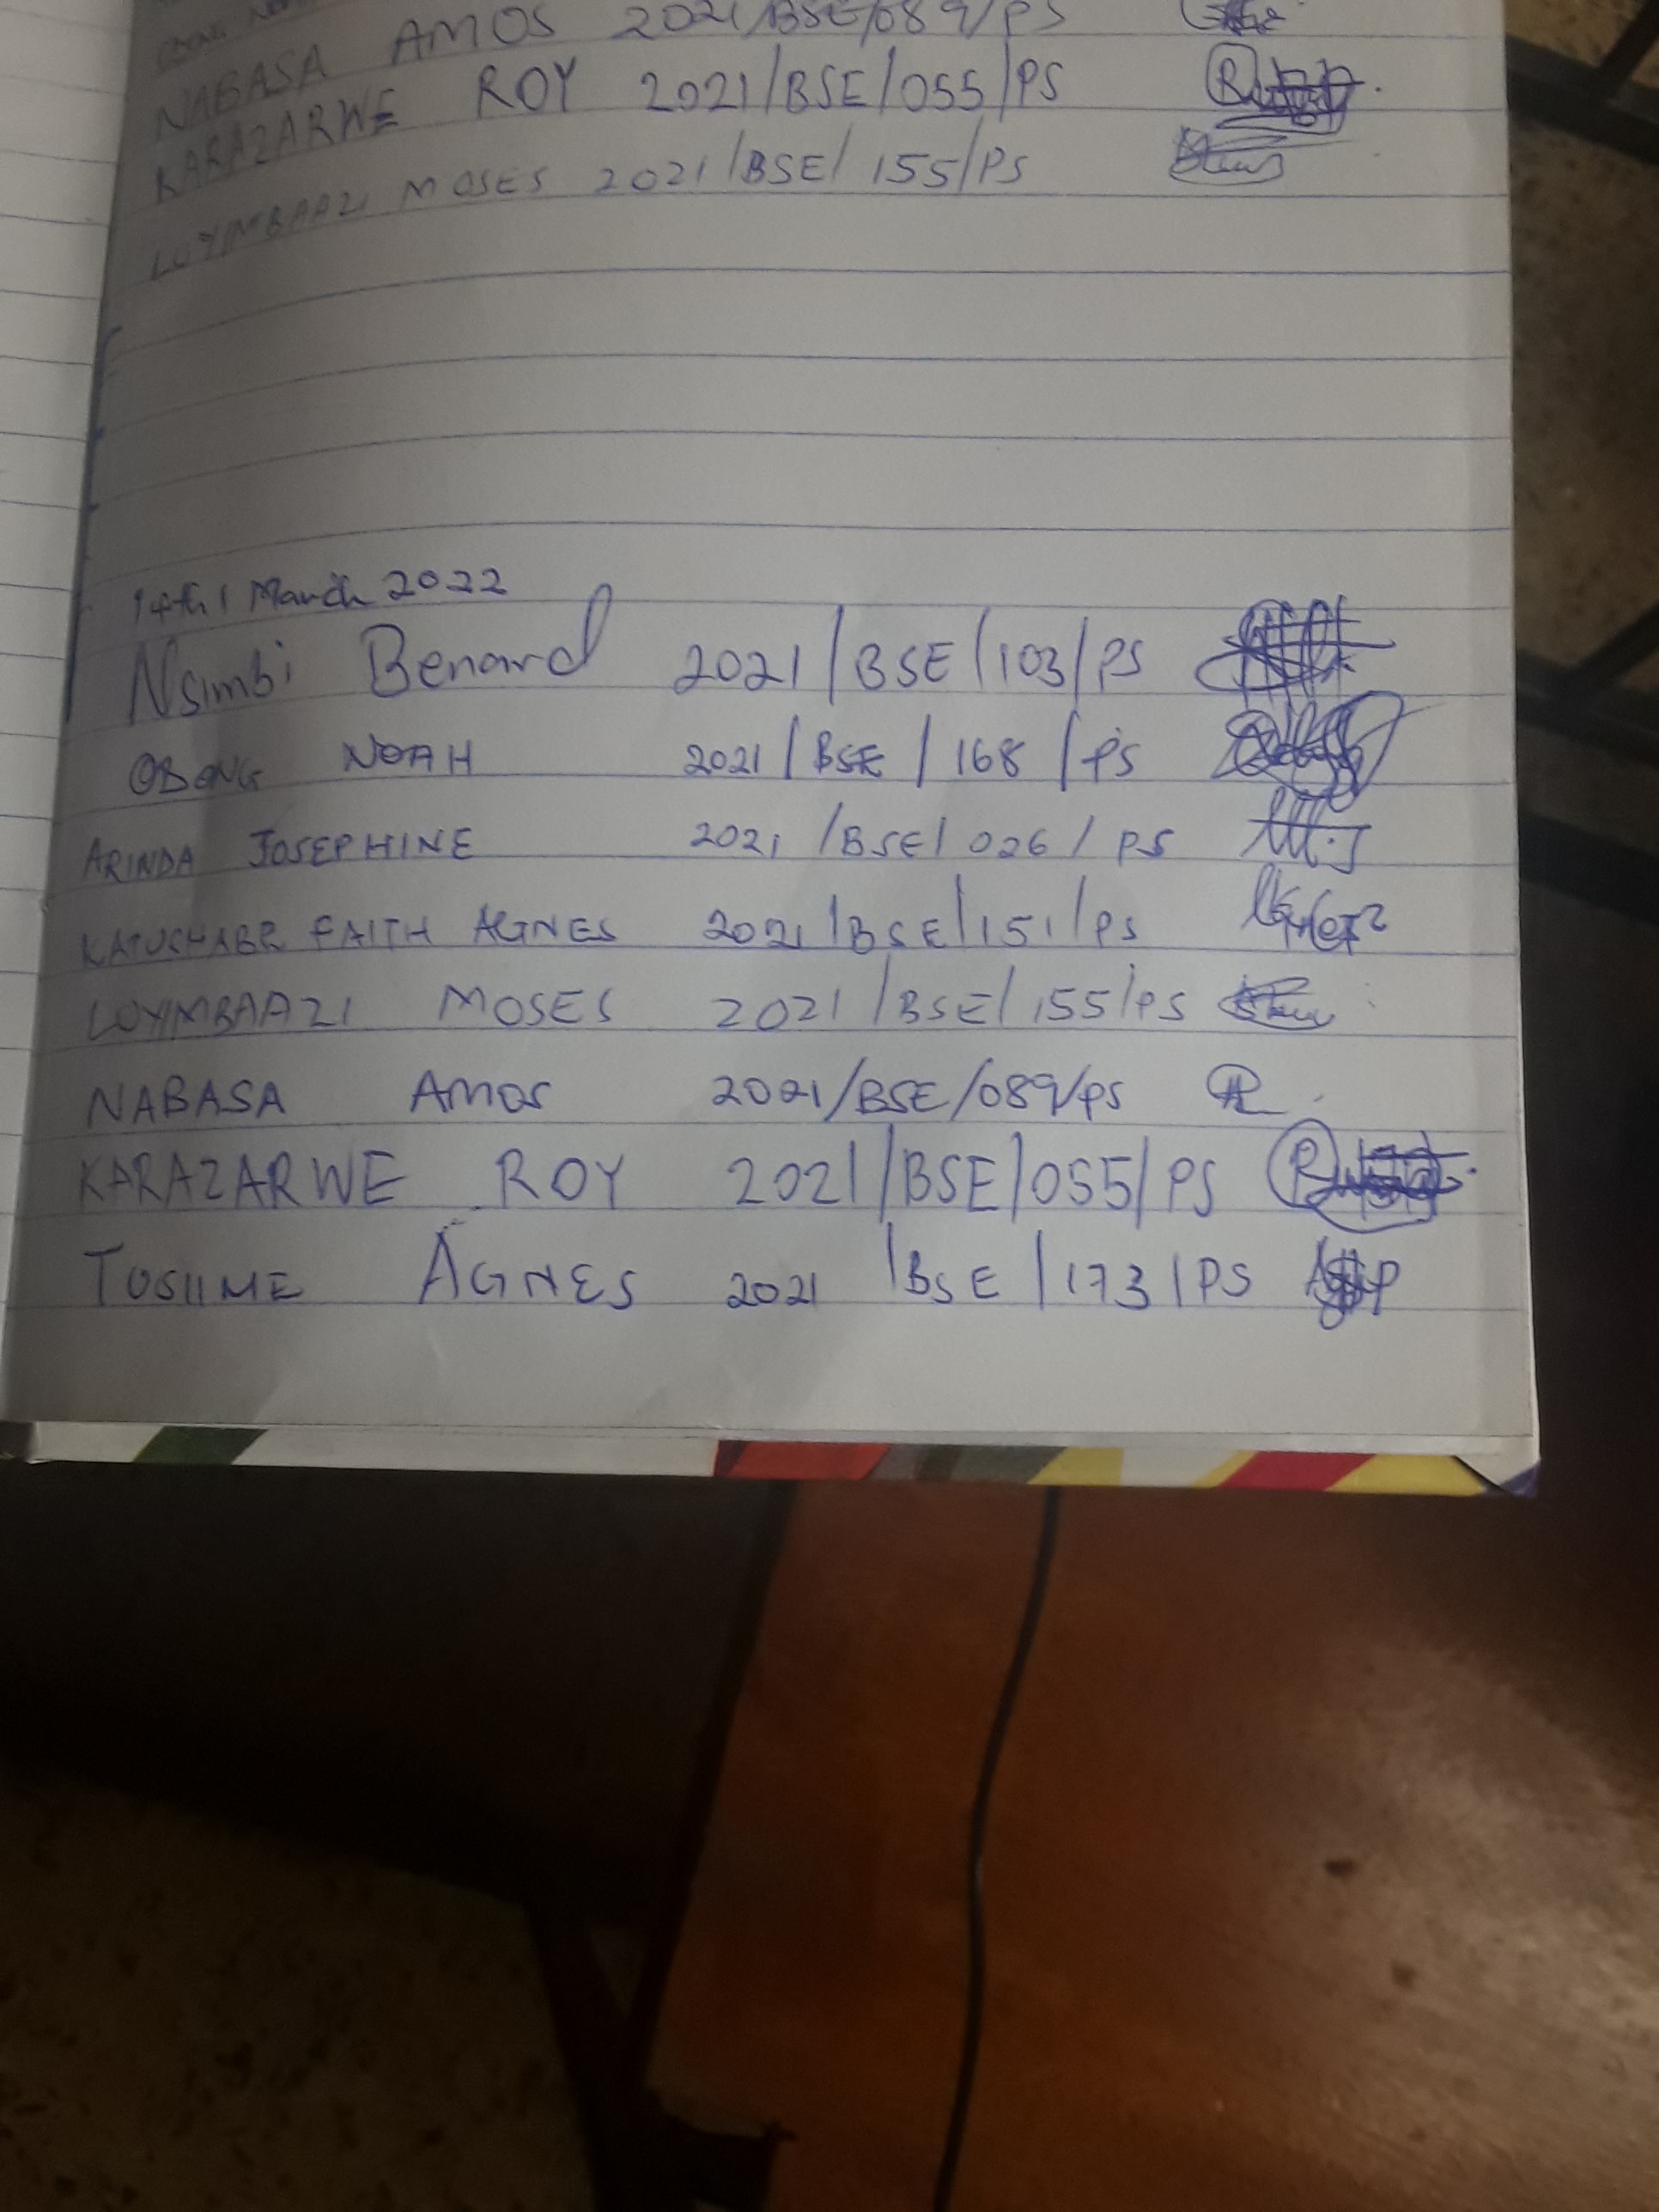 NABASA AMOS 2021/BSE/089/PS
KARAZARWE ROY 2021/BSE/055/PS
LUYIMBAAZI MOSES 2021/BSE/155/PS
14th March 2022
Nsimbi Benard 2021/BSE/103/PS
OBONG NOAH 2021/BSE/168/PS
ARINDA JOSEPHINE 2021/BSE/026/PS
KATUSHABE FAITH AGNES 2021/BSE/151/PS
LUYIMBAAZI MOSES 2021/BSE/155/PS
NABASA AMOS 2021/BSE/089/PS
KARAZARWE ROY 2021/BSE/055/PS
TUSIIME AGNES 2021/BSE/173/PS